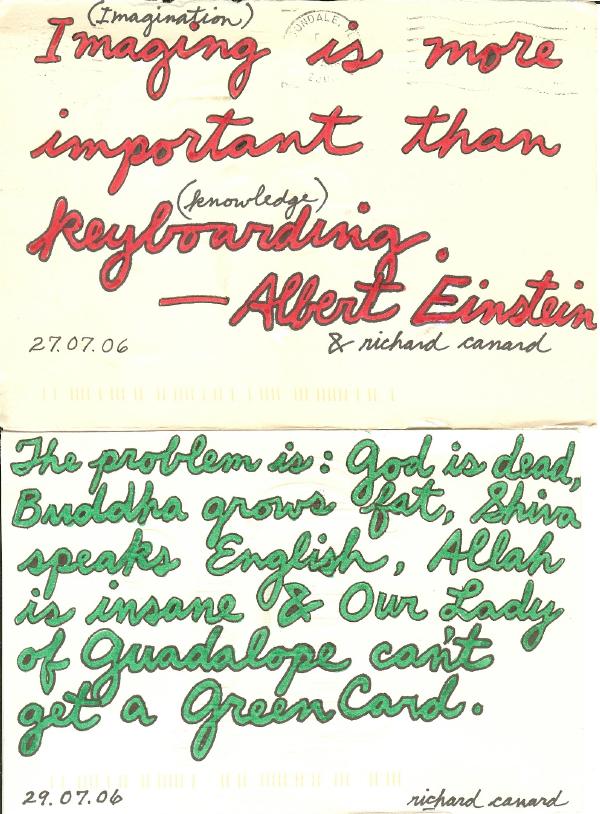 (Imagination)
Imaging is more
important than
(knowledge)
keyboarding.
— Albert Einstein
27.07.06 & richard canard
The problem is: God is dead,
Buddha grows fat, Shiva
speaks English, Allah
is insane & Our Lady
of Guadalope can't
get a Green Card.
29.07.06 richard canard